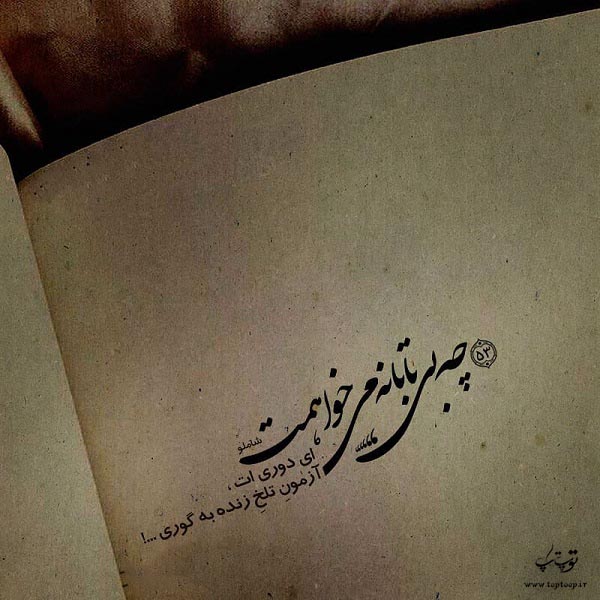 ۵۳
چه بی‌تابانه می‌خواهمت
شاملو
ای دوری ات،
آزمونِ تلخِ زنده به گوری ...!
توپ تاپ
www.toptoop.ir